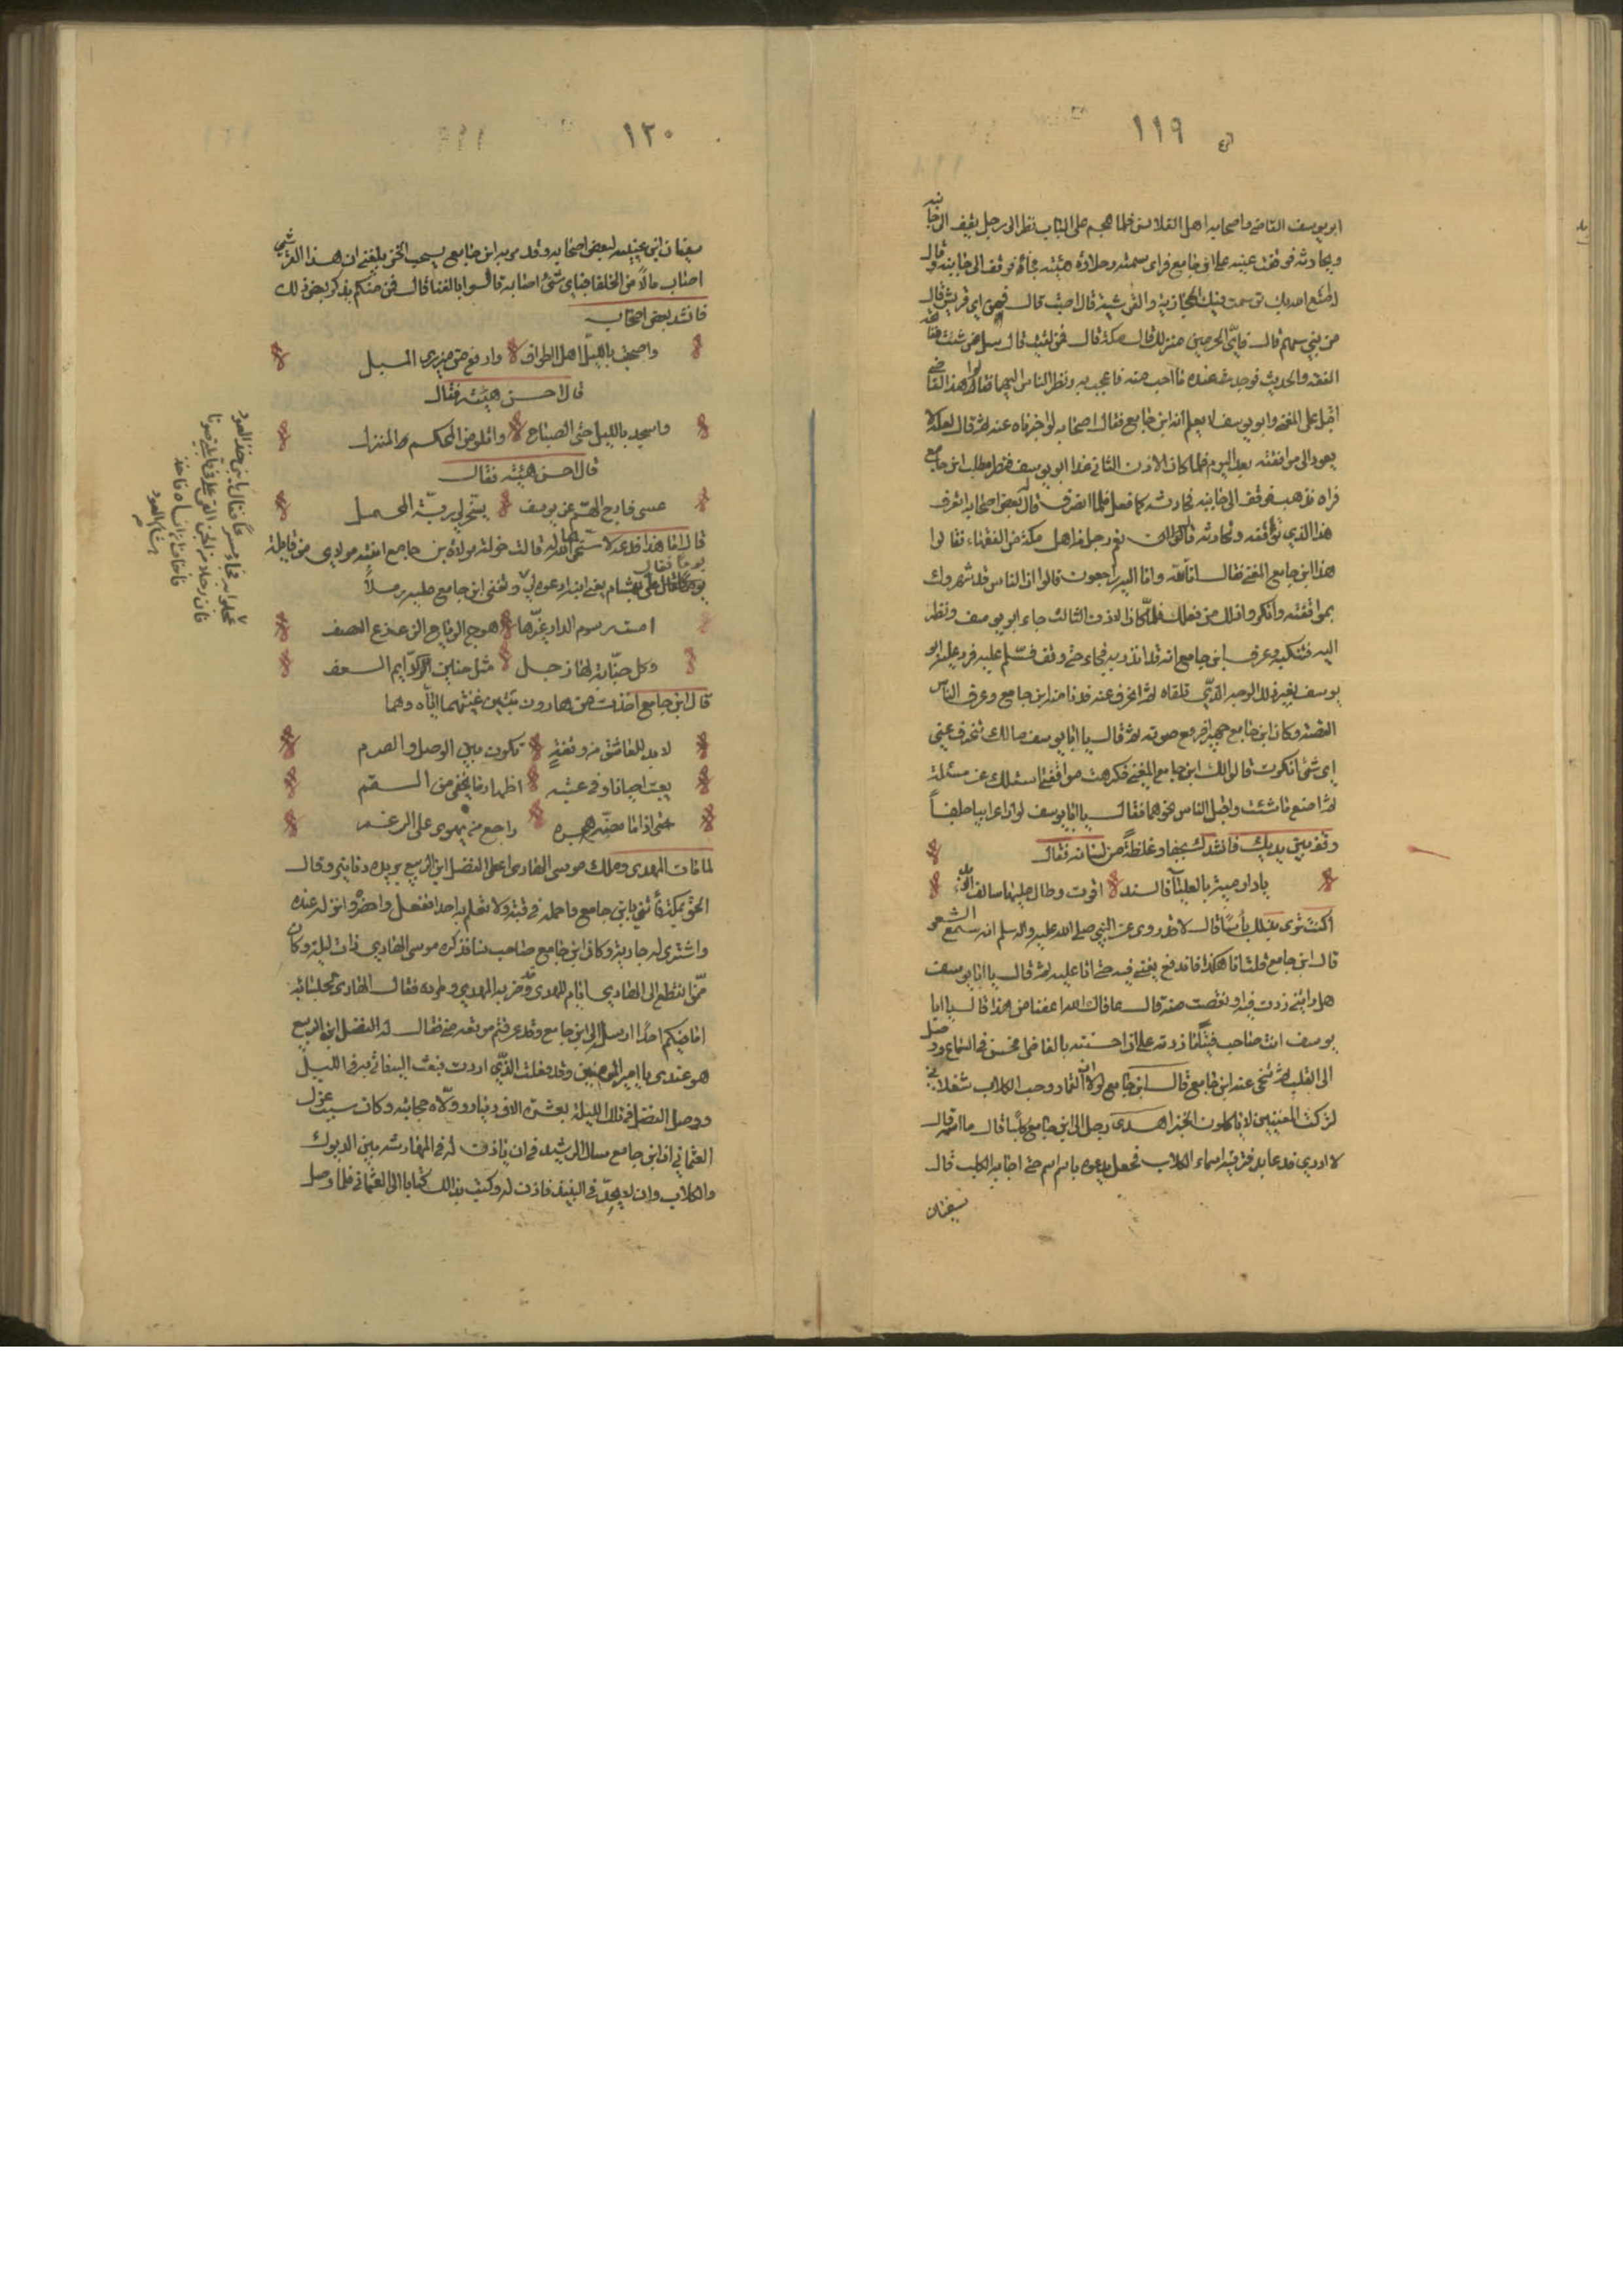 ١١٩
ابو يوسف القاضي واصحابه اهل القلانس فلما هجم على الباب نظر الى رجل يقف الى جانبه
ويحادثه فوقعت عينه على ابن جامع فراى سمته وحلاوة هيئته فجاء فوقف الى جانبه وقال
له امتع الله بك توسمت فيك الحجازية والقرشية قال اصبت قال فمن اي قريش قال
من بني سهم قال فاي الحرمين منزلك قال مكة قال فمن لقيت قال سل عن شئت ففاتحه
الفقه والحديث فوجد عنده ما احب منه فاعجب به ونظر الناس اليهما فقالوا هذا القاضي
اقبل على المغني وابو يوسف لا يعلم انه ابن جامع فقال اصحابه لو اخبرناه عنه ثم قال لعله لا
يعود الى مرافقته بعد اليوم فلما كان الاذن الثاني غدا ابو يوسف فنظر يطلب ابن جامع
فراه فذهب فوقف الى جانبه فحادثه كما فعل فلما انصرف قال له بعض اصحابه اتعرف
هذا الذي توافقه وتحادثه قال نعم رجل من اهل مكة من الفقهاء فقالوا
هذا ابن جامع المغني فقال انا لله وانا اليه راجعون قالوا ان الناس قد شهروك
بموافقته وانكروا ذلك من فعلك فلما كان الاذن الثالث جاء ابو يوسف ونظر
اليه فتنكبه وعرف ابن جامع انه قد انذر به فجاء حتى وقف فسلم عليه فرد عليه ابو
يوسف بغير ذلك الوجه الذي تلقاه ثم انحرف عنه فدنا منه ابن جامع وعرف الناس
القصة وكان ابن جامع جهيرا فرفع صوته ثم قال يا ابا يوسف مالك تنحرف عني
اي شئ انكرت قالوا لك ابن جامع المغني فكرهت موافقتي اسئلك عن مسئلة
ثم اصنع ما شئت واقبل الناس نحوهما فقال يا ابا يوسف لو ان اعرابيا جلفاً
وقف بين يديك فانشدك بجفاء وغلظة من لسانه فقال
يا دار مية بالعلياء فالسند اقوت وطال عليها سالف الابد
اكنت ترى بذلك بأسا قال لا قد روى عن النبي صلى الله عليه واله وسلم انه سمع الشعر
قال ابن جامع قلت انا هكذا فاندفع يغني فيه حتى اتى عليه ثم قال يا ابا يوسف
هل رايتني زدت فيه او نقصت منه قال عافاك الله اعفنا من هذا قال يا ابا
يوسف انت صاحب فتيا ما زدته على ان حسنته بالفاظي فحسن في السماع ووصل
الى القلب ثم تنحى عنه ابن جامع قال ابن جامع لولا ان القمار وحب الكلاب شغلاني
لتركت المغنيين لا ياكلون الخبز اهدى رجل الى ابن جامع كلبا قال ما اسمه قال
لا ادري فدعا بدفتر فيه اسماء الكلاب فجعل يدعوه باسم اسم حتى اجابه الكلب قال
سفيان
١٢٠
سفيان ابن عيينه لبعض اصحابه وقد مر به ابن جامع يسحب الخز بلغني ان هذا القرشي
اصاب مالا من الخلفا فباي شئ اصابه قالوا بالغنا قال فمن منكم يذكر بعض ذلك
فانشد بعض اصحابه
واصحب بالليل اهل الطواف وارفع من ميزري المسبل
قال احسن هيئته فقال
واسجد بالليل حتى الصباح واتلو من المحكم والمنزل
قال احسن هيئته فقال
عسى فارج الهم عن يوسف يسخر لي ربة المحمل
قال اما هذا فدعه قالت خولة مولاة ابن جامع انتبه مولاي من قايلة
يوما فقال علي بهشام يعني ابنه ادعوه لي وتغنى ابن جامع عليه رملاً
امست رسوم الدار غيرها هوج الرياح الزعزع العصف
وكل حنانة لها زجل مثل حنين الروايم السعف
قال ابن جامع اخذت من هارون ببيتين غنيتهما اياه وهما
لا بد للعاشق من وقفة تكون بين الوصل والصرم
يعتب احيانا وفي عتبه اظهار ما يخفى من السقم
حتى اذا ما مضه هجره راجع من يهوى على الرغم
لما مات المهدى وملك موسى الهادى اعطى الفضل ابن الربيع بريده دنانير وقال
الحق بمكة فأتني بابن جامع واحمله في قبة ولا تعلم به احدا ففعل واحضره وانزله عنده
واشترى له جارية وكان ابن جامع صاحب نسا فذكره موسى الهادي ذات ليلة وكان
ممن انقطع الى الهادي ايام المهدى وقد ضربه المهدي وطرده فقال الهادى لجلسائه
اما فيكم احدا ارسل الى ابن جامع وقد عرفتم موقعه مني فقال له الفضل ابن الربيع
هو عندى يا امير المومنين وقد فعلت الذي اردت فبعث اليه فاتي به في الليل
ووصل الفضل في تلك الليلة بعشرة الاف دينار وولاه حجابته وكان سبب عزل
العثماني ان ابن جامع سال الرشيد في ان ياذن له في المهارشة بين الديوك
والكلاب وان لا يحد في النبيذ فاذن له وكتب بذالك كتابا الى العثماني فلما وصل
هشام العود